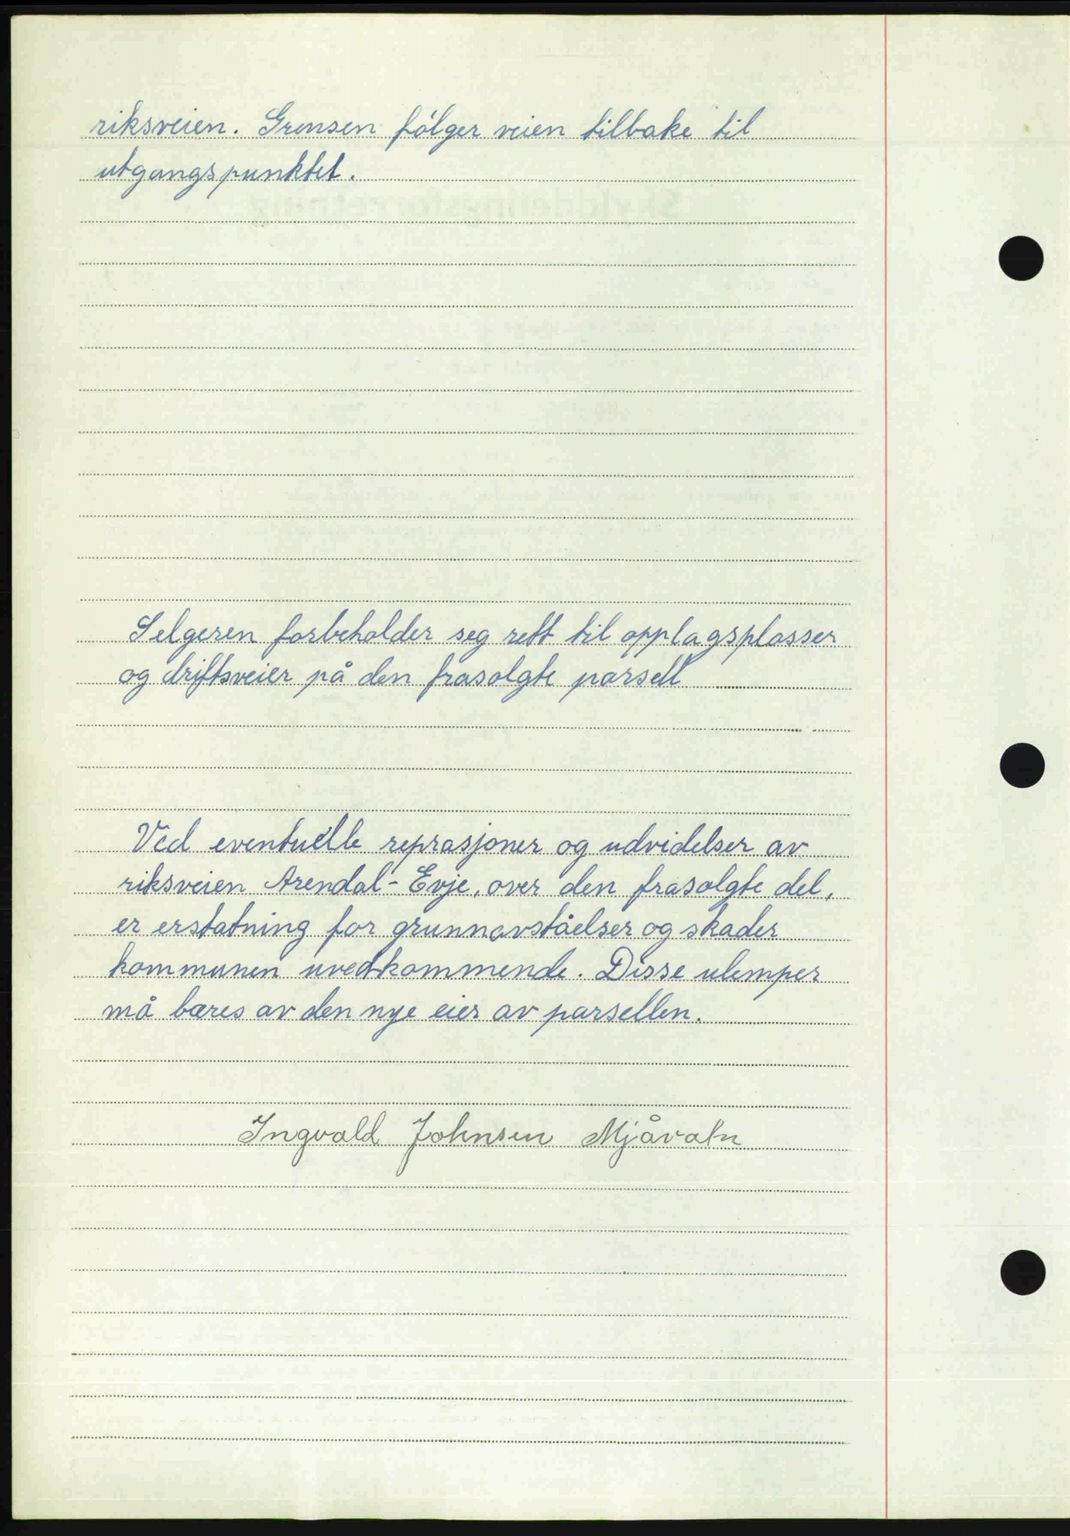 riksveien. Grensen følger veien tilbake til
utgangspunktet.
Selgeren forbeholder seg rett til opplagsplasser
og driftsveier på den frasolgte parsell
Ved eventuelle reprasjoner og udvidelser av
riksveien Arendal - Evje, over den frasolgte del,
er erstatning for grunnavståelser og skader
kommunen uvedkommende. Disse ulemper
må bæres av den nye eier av parsellen.
Ingvald Johnsen Mjåvatn